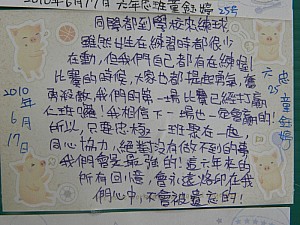 2010年6月17日 六年忠班童鈺婷 25号
同學都到學校來練球
雖然他在練習時都很少
在動，但我們自己都有在練喔！
比賽的時候，大家也都提起勇氣，奮
勇殺敵，我們的第一場比賽已經打贏
仁班囉！我相信下一場也一定會贏的！
所以，只要忠極一班聚在一起，
同心協力，絕對沒有做不到的事
我們會是最強的！這六年來的
所有回憶，會永遠烙印在我
們心中，不會被遺忘的！
2010年6月17日
六忠25童鈺婷